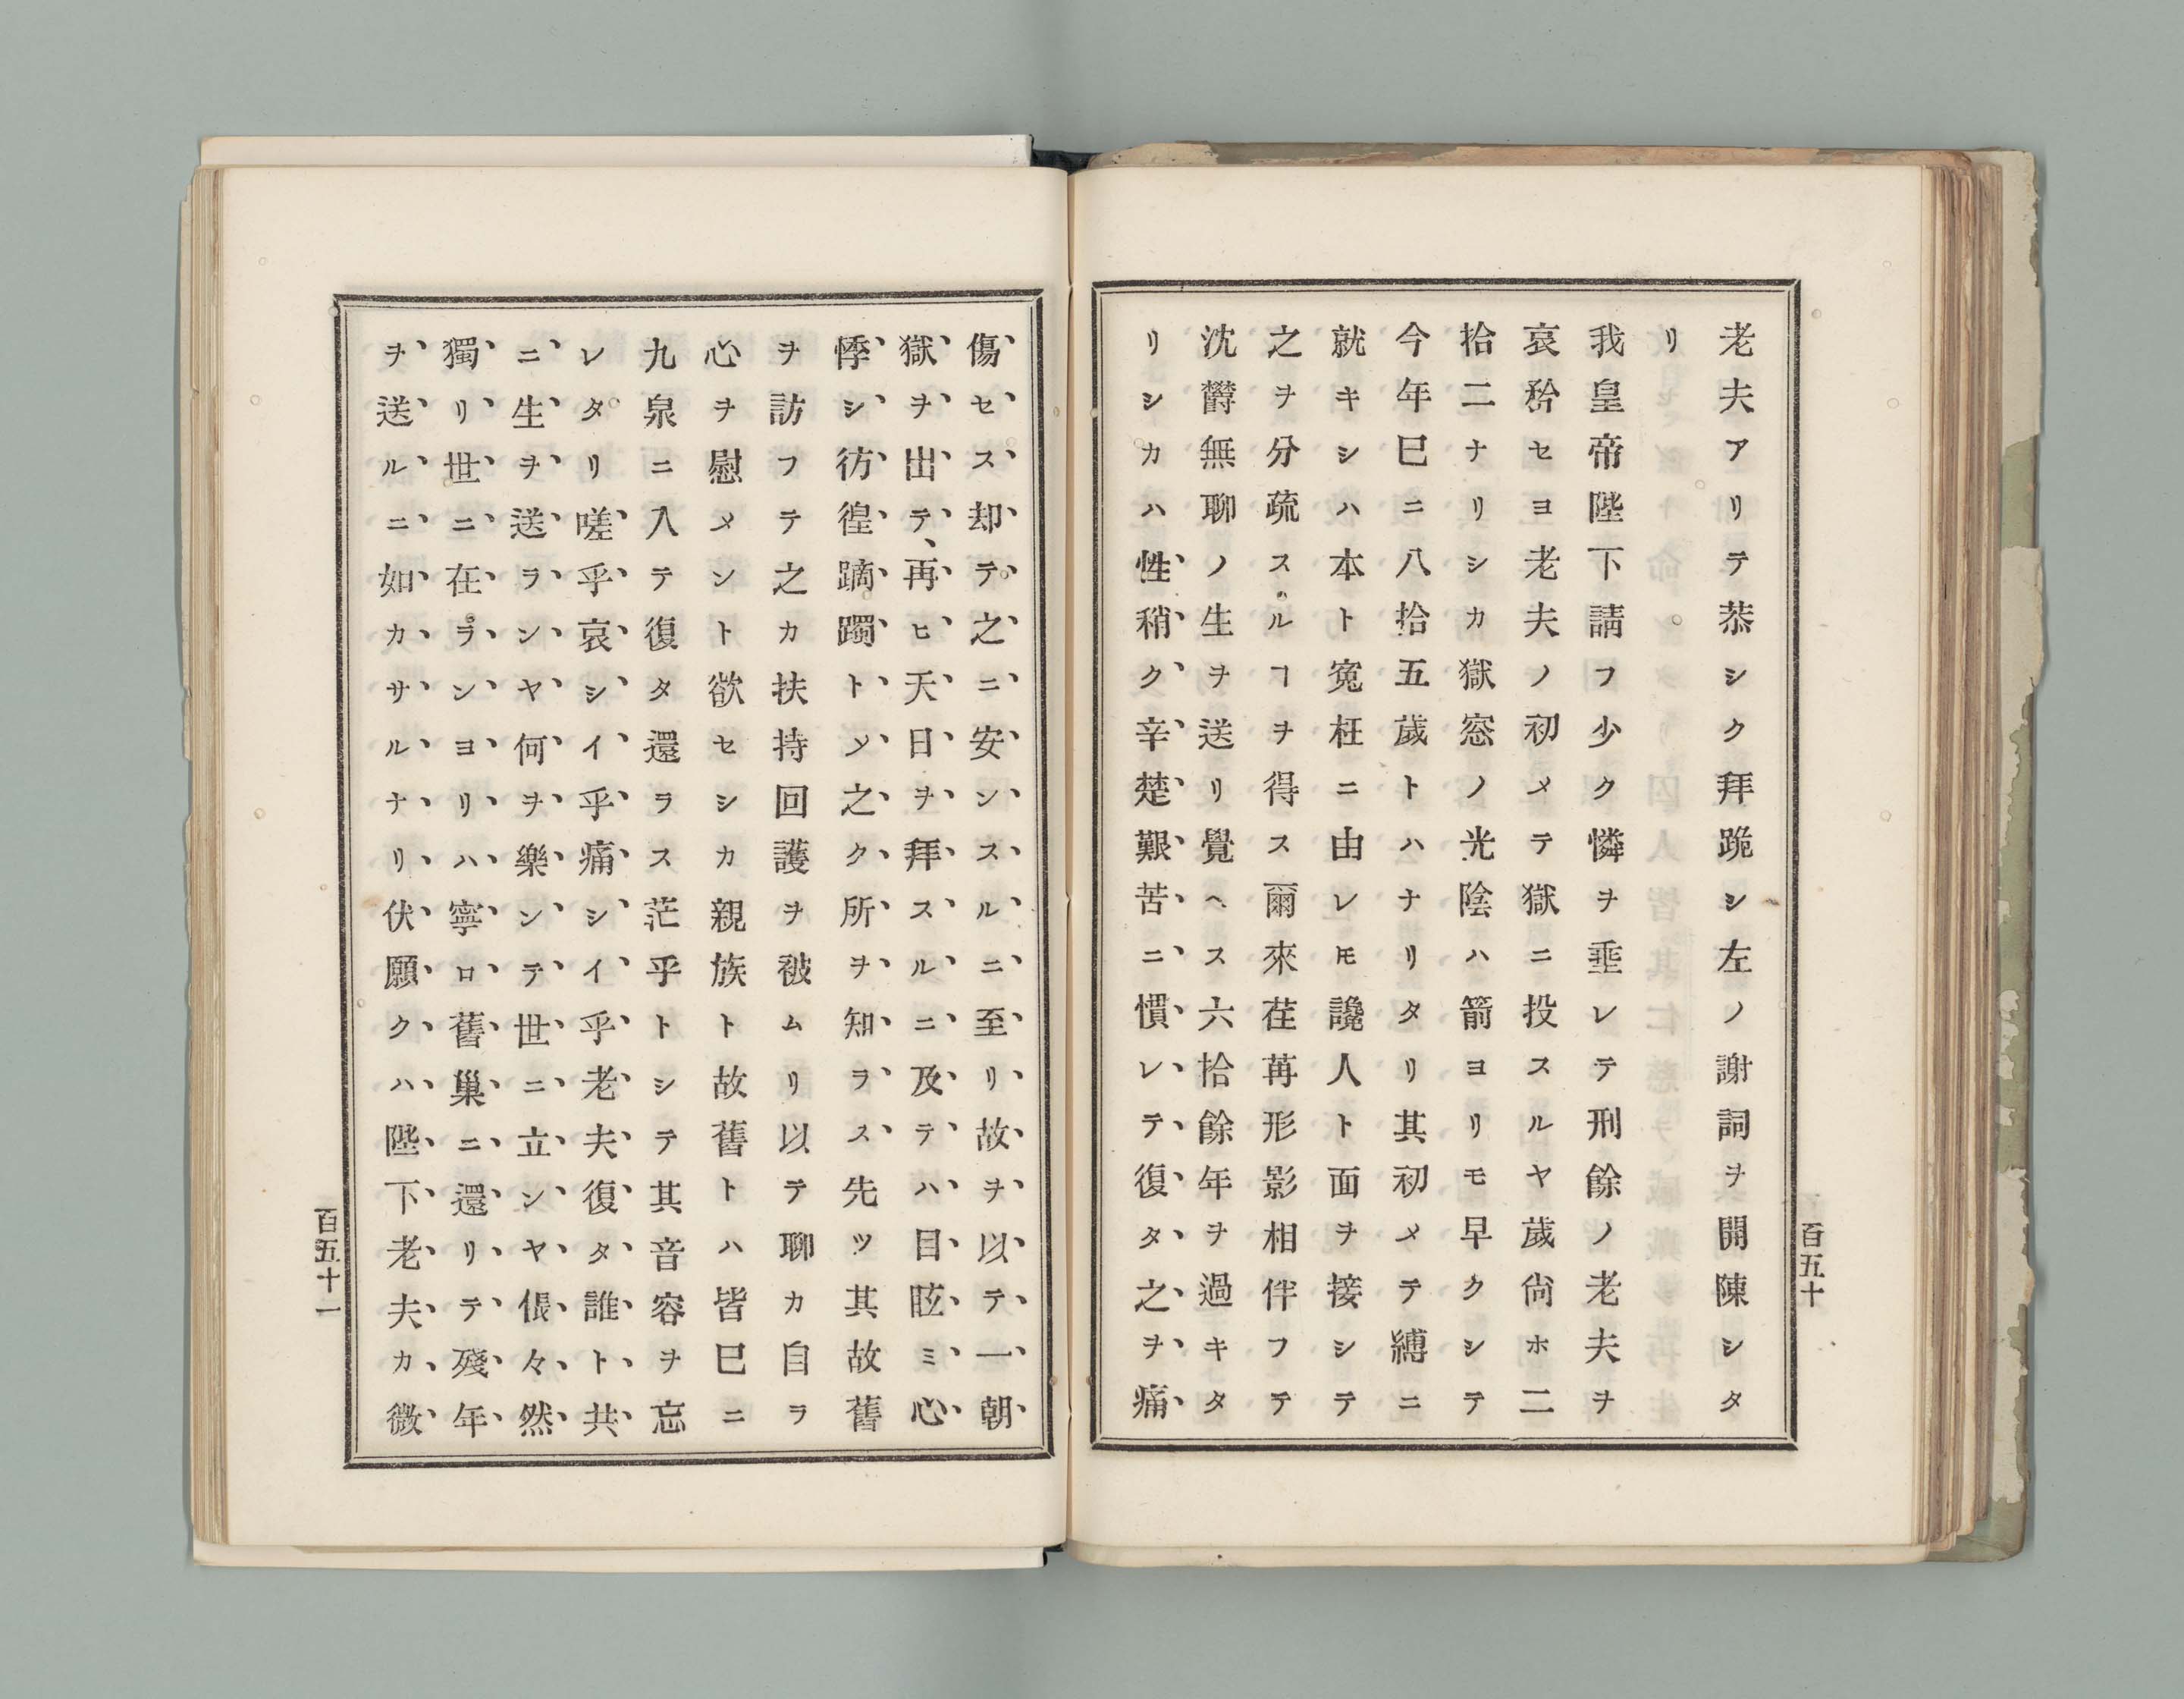 老夫アリテ恭シク拜跪シ左ノ謝詞ヲ開陳シタ
リ
我皇帝陛下請フ少ク憐ヲ垂レテ刑餘ノ老夫ヲ
哀矜セヨ老夫ノ初メテ獄ニ投スルヤ歲尙ホ二
拾二ナリシカ獄窓ノ光陰ハ箭ヨリモ早クシテ
今年巳ニ八拾五歲トハナリタリ其初メテ縛ニ
就キシハ本ト寃枉ニ由レ𪜈讒人ト面ヲ接シテ
之ヲ分疏スルヿヲ得ス爾來荏苒形影相伴フテ
沈欝無聊ノ生ヲ送リ覺ヘス六拾餘年ヲ過キタ
リシカハ性稍ク辛楚艱苦ニ慣レテ復タ之ヲ痛
百五十
傷セス却テ之ニ安ンスルニ至リ故ヲ以テ一朝
獄ヲ出テ、再ヒ天日ヲ拜スルニ及テハ目眩ミ心
悸シ彷徨躑躅トメ之ク所ヲ知ラス先ツ其故舊
ヲ訪フテ之カ扶持回護ヲ被ムリ以テ聊カ自ラ
心ヲ慰メント欲セシカ親族ト故舊トハ皆巳ニ
九泉ニ入テ復タ還ラス茫乎トシテ其音容ヲ忘
レタリ嗟乎哀シイ乎痛シイ乎老夫復タ誰ト共
ニ生ヲ送ランヤ何ヲ樂ンテ世ニ立ンヤ倀々然
獨リ世ニ在ランヨリハ寧ロ舊巢ニ還リテ殘年
ヲ送ルニ如カサルナリ伏願クハ陛下老夫カ微
百五十一